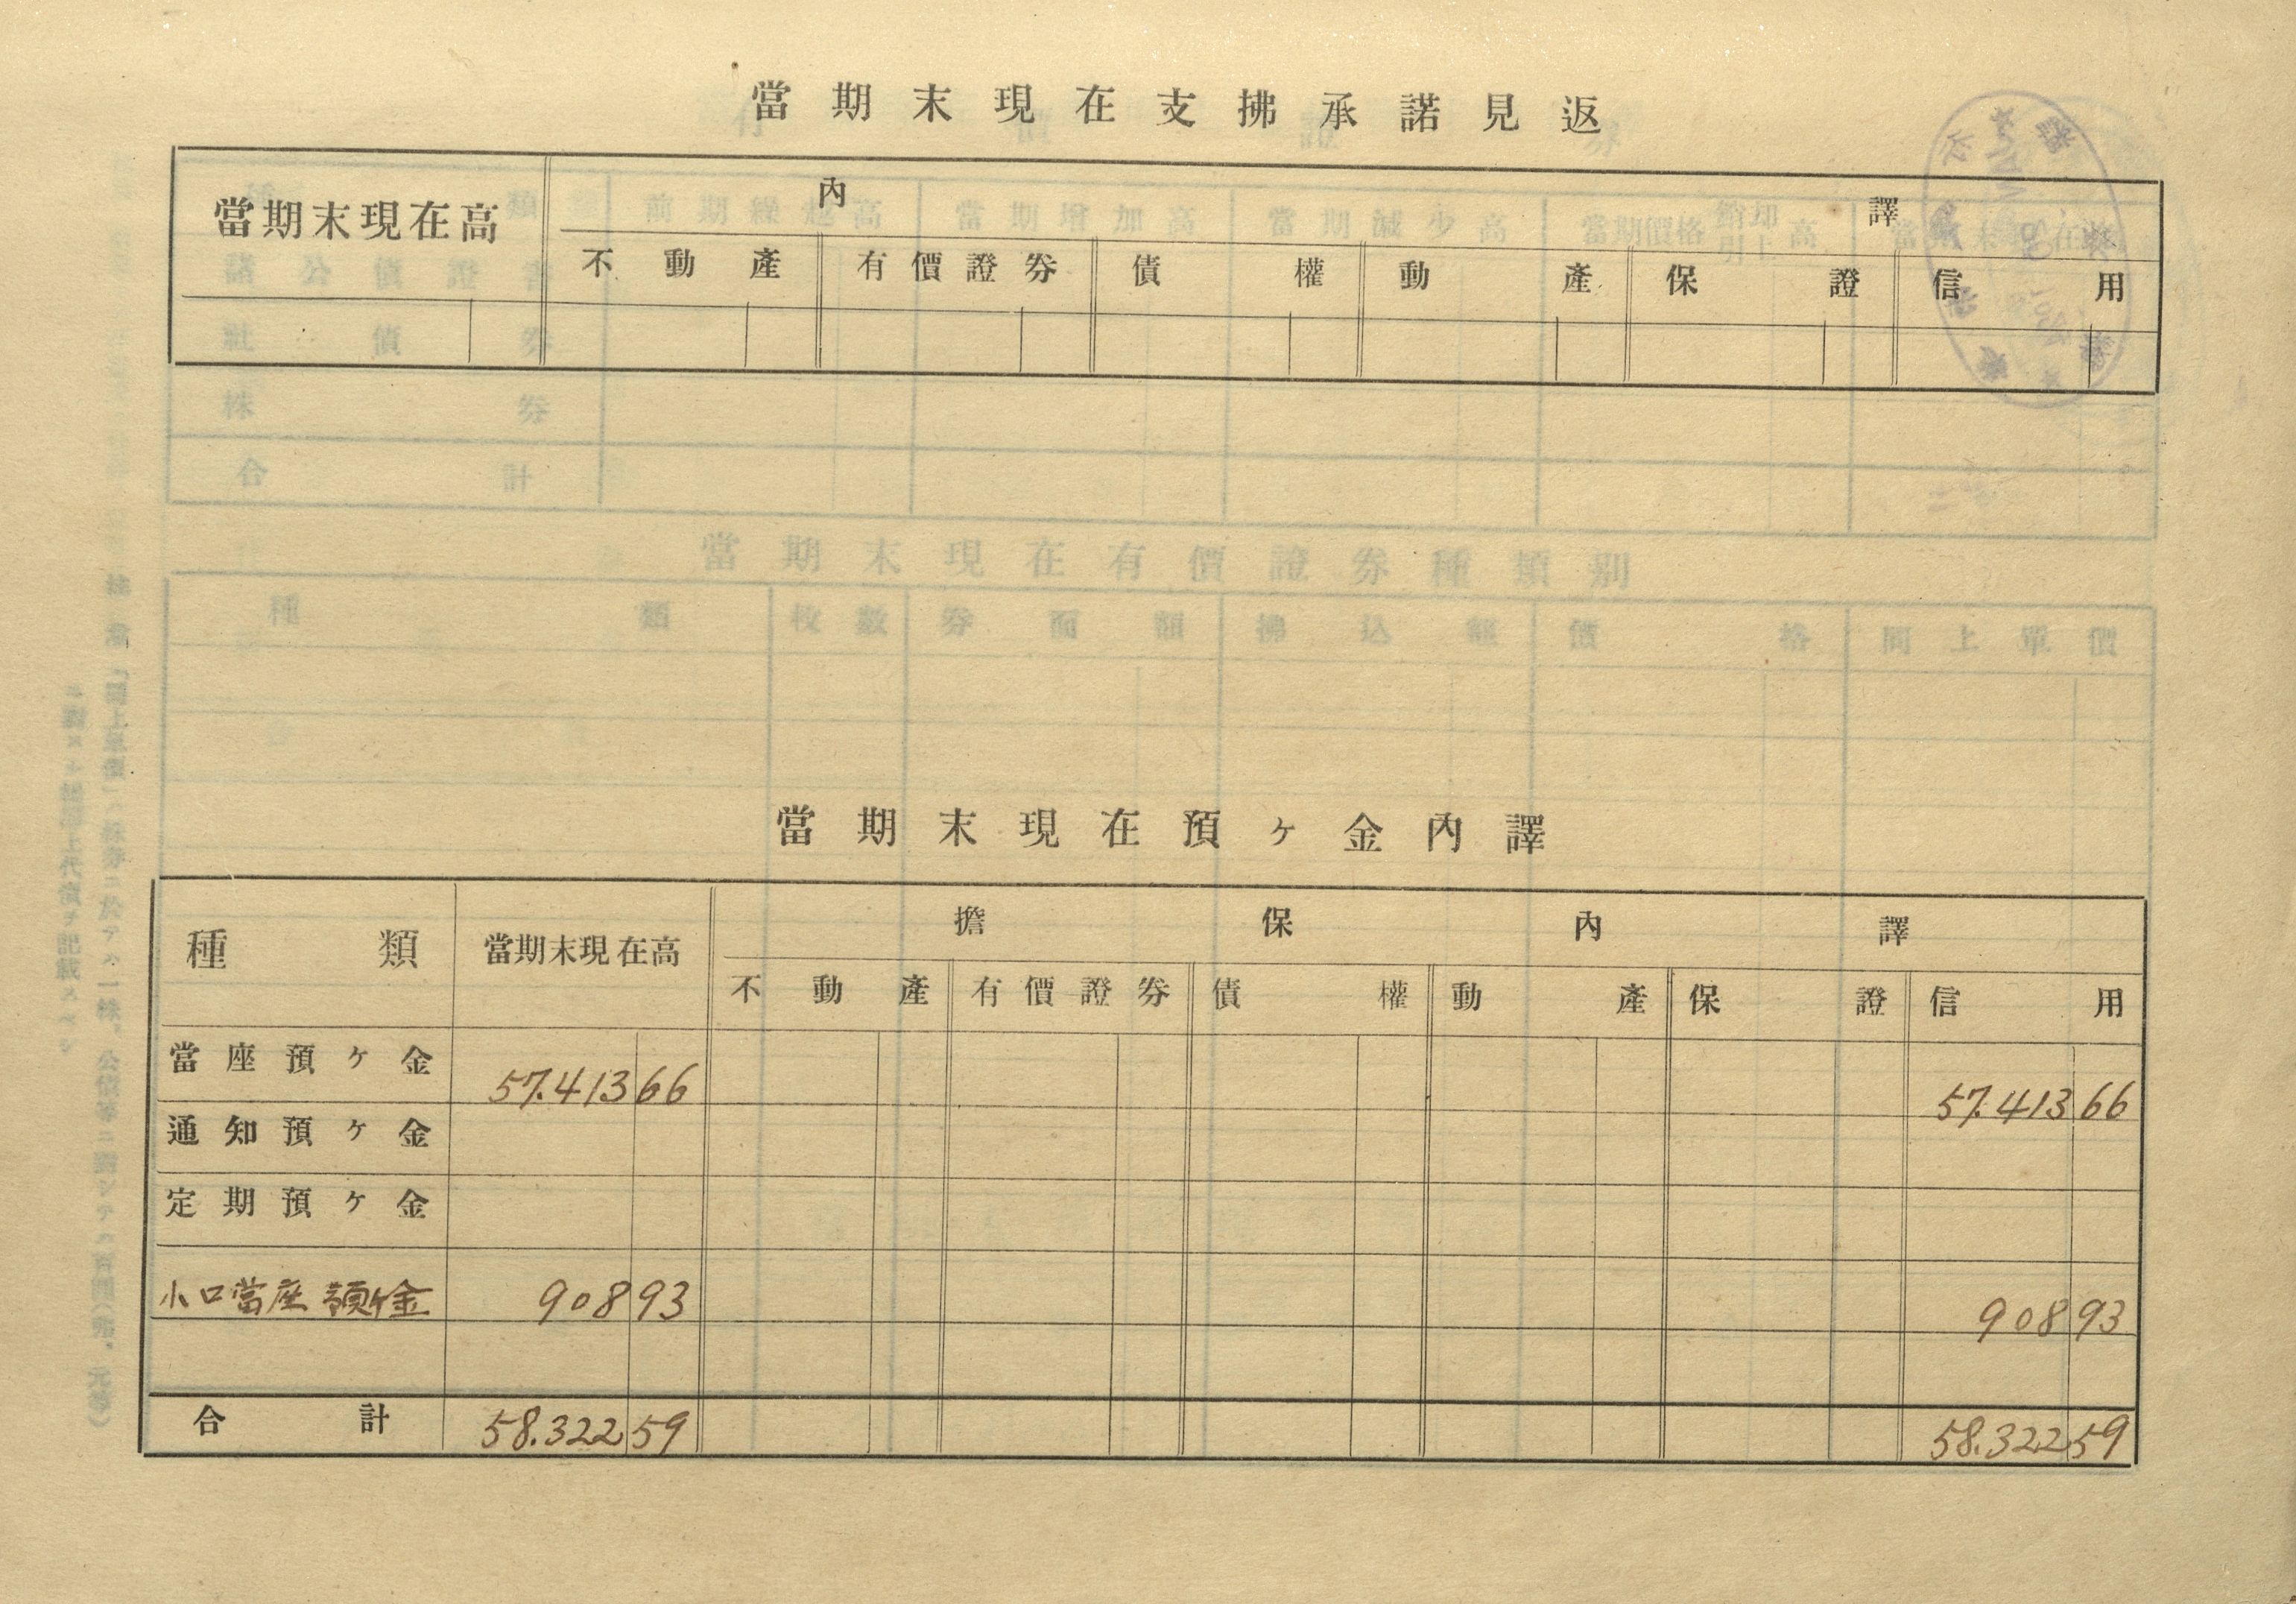 當期末現在支拂承諾見返
當期末現在高 內譯
不動產 有價證券 債權 動產 保證 信用
當期末現在預ヶ金內譯
種類 當期末現在高 擔保內譯
不動產 有價證券 債權 動產 保證 信用
當座預ヶ金 57.413 66 57.413 66
通知預ヶ金
定期預ヶ金
小口當座預ヶ金 908 93 908 93
合計 58.322 59 58.322 59